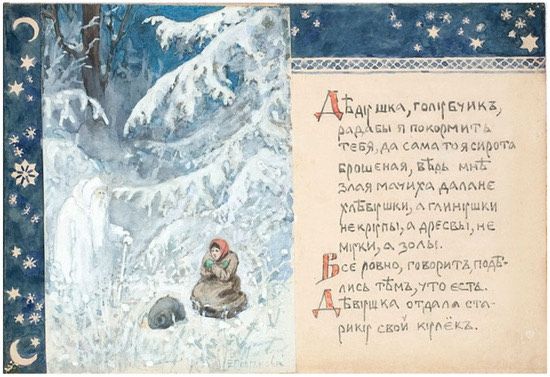 Дѣдушка, голубчикъ,
рада бы я покормить
тебя, да сама то я сирота
брошеная, вѣрь мнѣ
злая мачиха дала не
хлѣбушки, а глинушки
не крупы, а дресвы, не
муки, а золы.
Все ровно, говоритъ, подѣ-
лись тѣмъ, что есть.
Дѣвушка отдала ста-
рику свой кулёкъ.